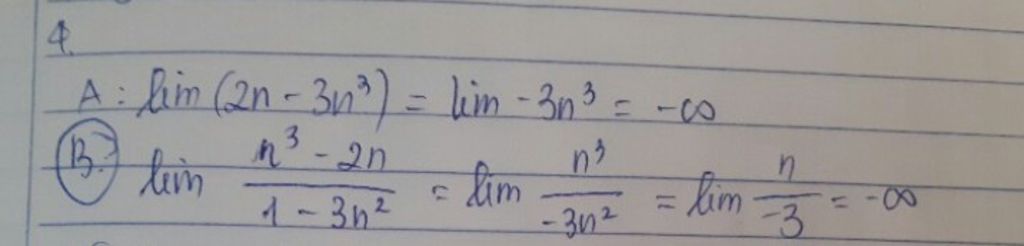 4.
A : lim (2n - 3n³) = lim -3n³ = -∞
B. lim (n³ - 2n)/(1 - 3n²) = lim n³/(-3n²) = lim n/(-3) = -∞